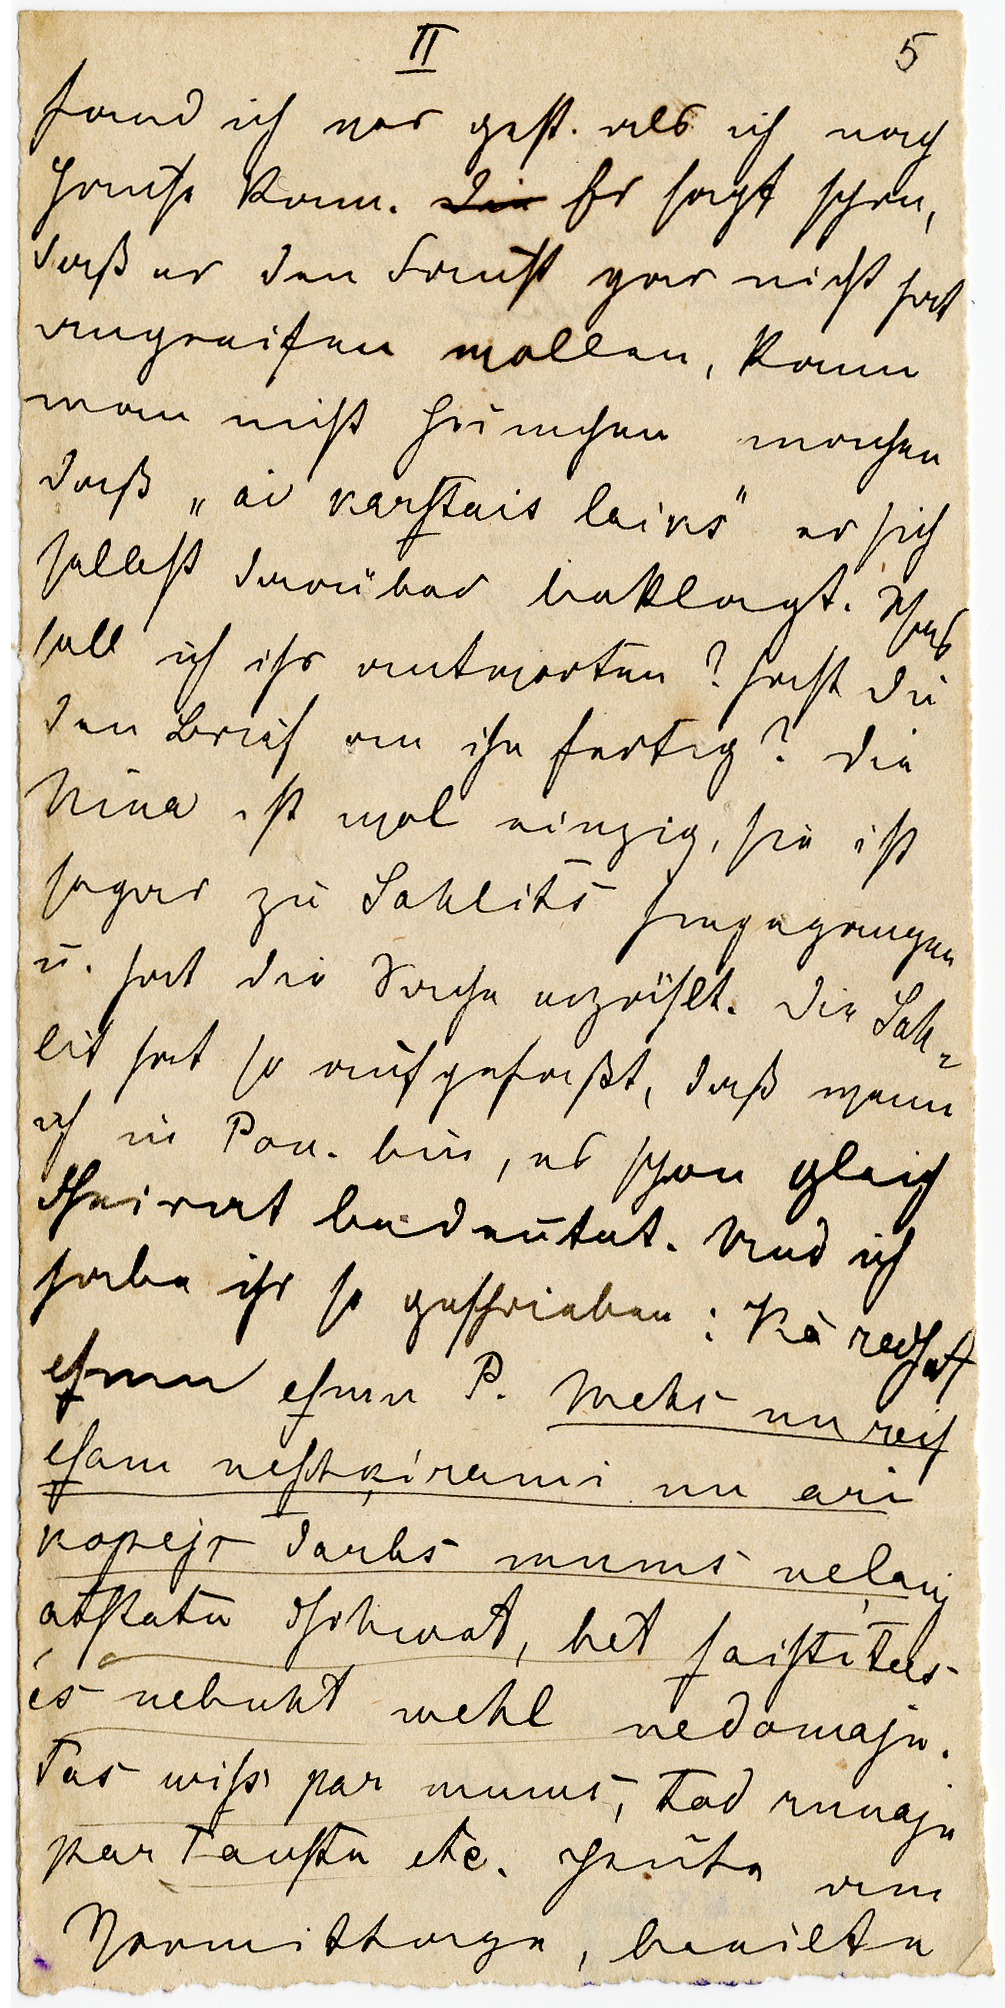 II 5
fand ich vor gest. als ich nach
Hause kam. Die Er sagt schon,
daß er den Faust gar nicht hat
angreifen wollen, kann
man nicht machen
daß „ai karstais laiks" er sich
selbst darüber beklagt. Was
soll ich ihr antworten? Hast du
den Brief an ihn fertig? Die
Nina ist mal einzig, sie ist
sogar zu Sahlits hingegangen
u. hat die Sache erzählt. Die Sah-
lit hat so aufgefaßt, daß wenn
ich in Pan. bin, es schon gleich
Heirat bedeutet. Und ich
habe ihr so geschrieben: Kā redsat
esmu esmu P. Mehs nu reis
esam neschķirami un ari
kopejs darbs mums neļauj
atstatu dsihwot, bet saistitees
es nebuht wehl nedomaju.
Tas wiss par mums, tad runaju
par Faustu etc. Heute am
Vormittage, beeilte